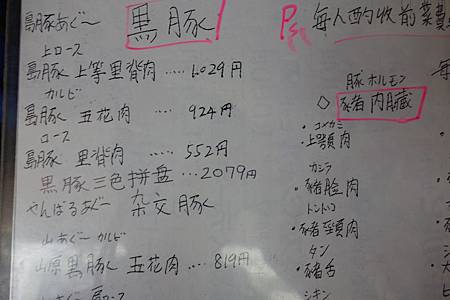 島豚あぐ～
黒豚
上ロース
島豚 上等里脊肉 ..... 1,029円
カルビ
島豚 五花肉 .... 924円
ロース
島豚 里脊肉 ..... 552円
黒豚三色拼盘 ... 2079円
やんばるあぐ～ 杂交豚
山あぐ～ カルビ
山原黒豚 五花肉 ... 819円
Ps 每人酌收前菜費
豚ホルモン
◇ 豬內臟
コメカミ
・上顎肉
カシラ
・豬臉肉
トントロ
・豬頸肉
タン
・豬舌
シキン